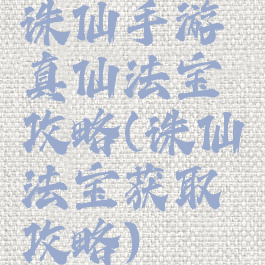 诛仙手游
真仙法宝
攻略(诛仙
法宝获取
攻略)